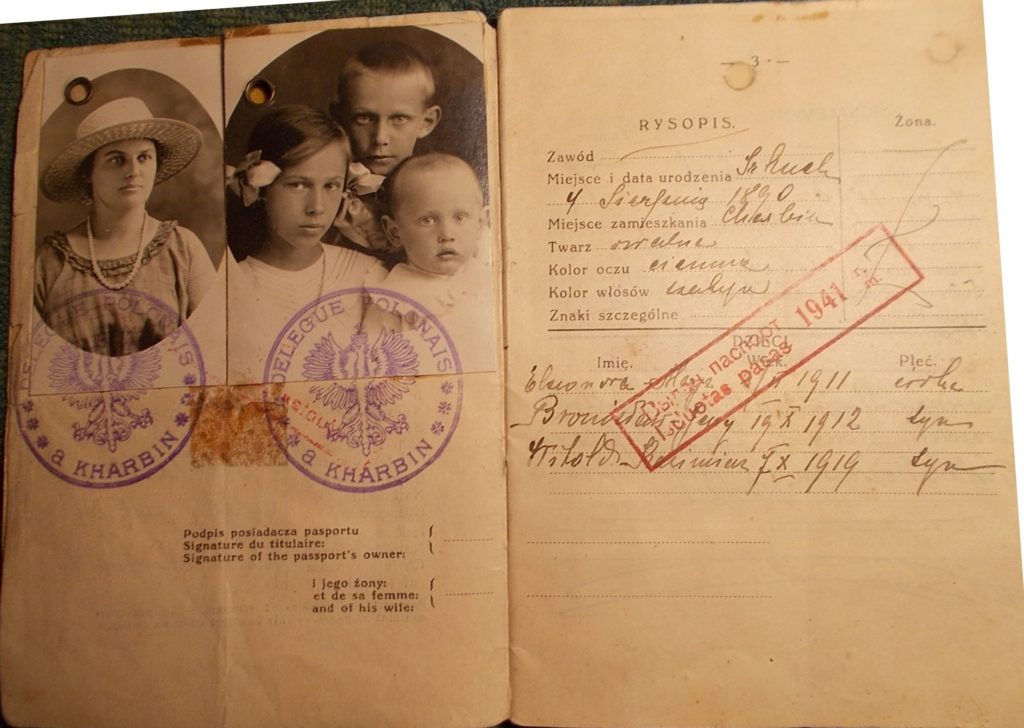 DELEGUE POLONAIS
a KHARBIN
DELEGUE POLONAIS
a KHARBIN
Podpis posiadacza pasportu
Signature du titulaire:
Signature of the passport's owner:
i jego żony:
et de sa femme:
and of his wife:
— 3 —
RYSOPIS.
Żona.
Zawód
Miejsce i data urodzenia
4 Sierpnia 1890
Miejsce zamieszkania Charbin
Twarz owalna
Kolor oczu ciemne
Kolor włosów
Znaki szczególne
DZIECI
Imię. Wiek. Płeć.
1911 córka
19 X 1912 syn
Witold Kazimierz 7 X 1919 syn
паспорт
Izdotas pases 1941